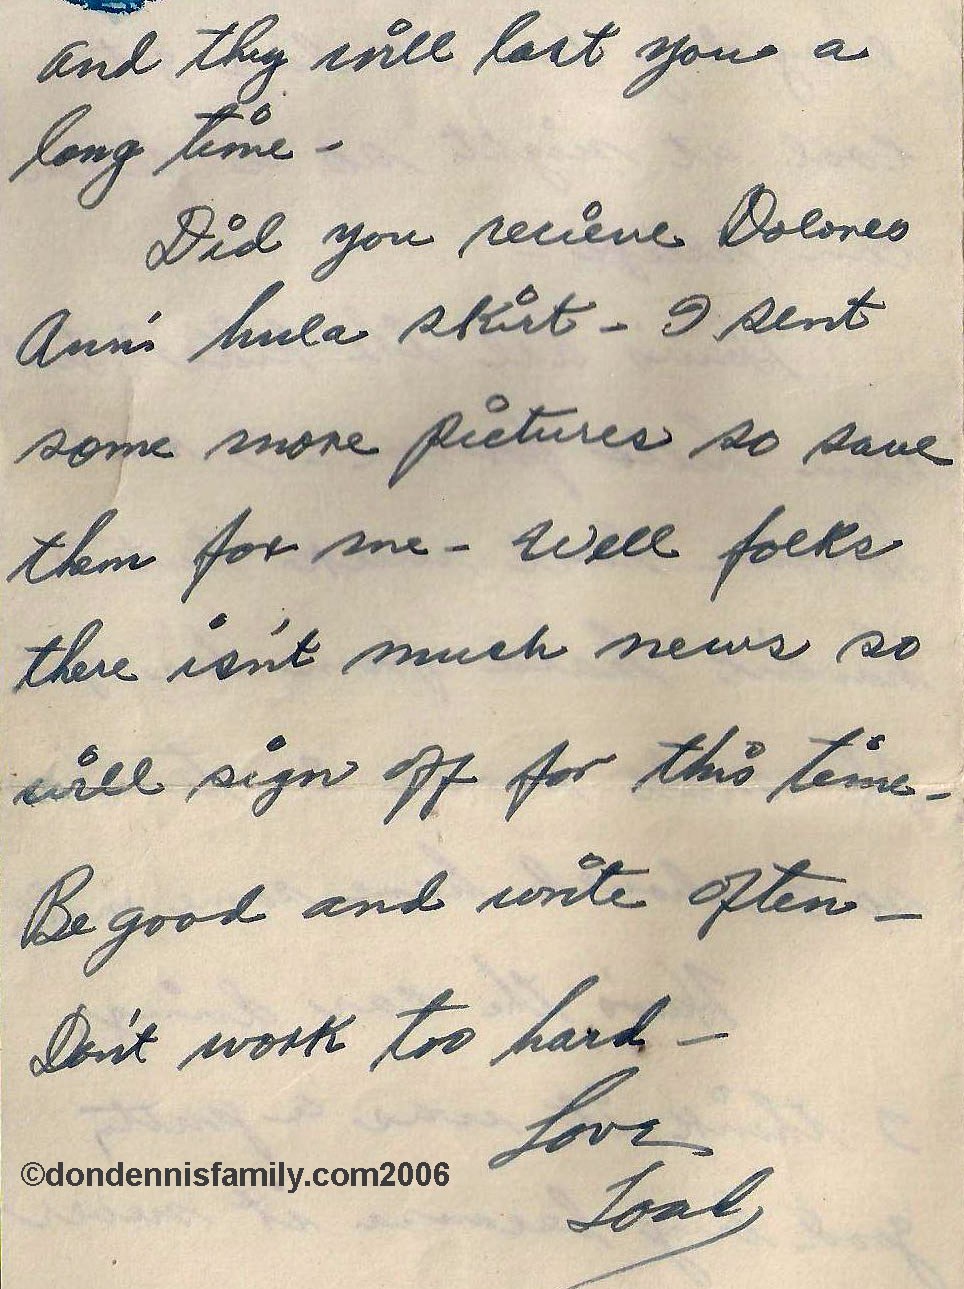 and they will last you a
long time -
Did you recieve Dolores
Ann's hula skirt - I sent
some more pictures so save
them for me - Well folks
there isn't much news so
will sign off for this time -
Be good and write often -
Don't work too hard -
Love
Toal
©dondennisfamily.com2006